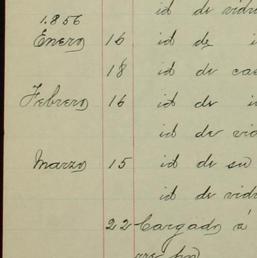 id de vidr
1.856
Enero 16 id de i
18 id de cae
Febrero 16 id de i
id de vid
Marzo 15 id de su
id de vidr
22 Cargado á